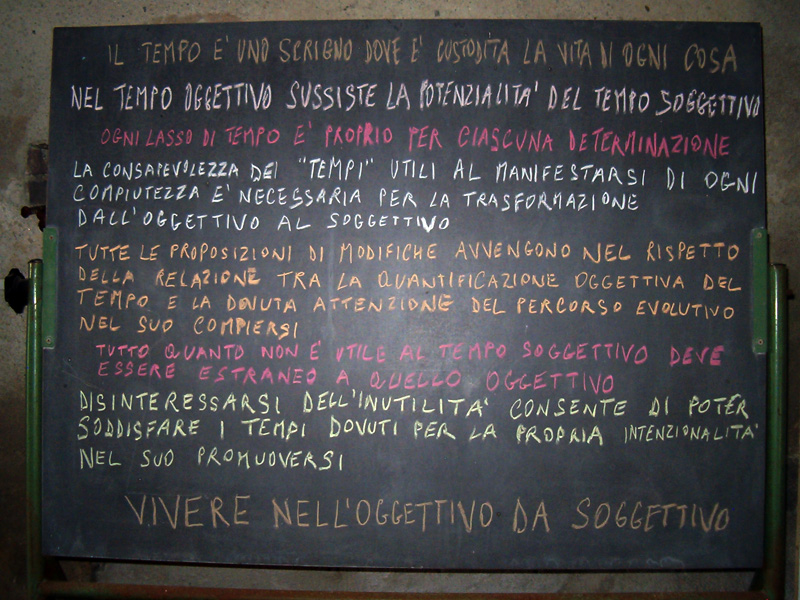 IL TEMPO E' UNO SCRIGNO DOVE E' CUSTODITA LA VITA DI OGNI COSA
NEL TEMPO OGGETTIVO SUSSISTE LA POTENZIALITA' DEL TEMPO SOGGETTIVO
OGNI LASSO DI TEMPO E' PROPRIO PER CIASCUNA DETERMINAZIONE
LA CONSAPEVOLEZZA DEI "TEMPI" UTILI AL MANIFESTARSI DI OGNI
COMPIUTEZZA E' NECESSARIA PER LA TRASFORMAZIONE
DALL'OGGETTIVO AL SOGGETTIVO
TUTTE LE PROPOSIZIONI DI MODIFICHE AVVENGONO NEL RISPETTO
DELLA RELAZIONE TRA LA QUANTIFICAZIONE OGGETTIVA DEL
TEMPO E LA DOVUTA ATTENZIONE DEL PERCORSO EVOLUTIVO
NEL SUO COMPIERSI
TUTTO QUANTO NON E' UTILE AL TEMPO SOGGETTIVO DEVE
ESSERE ESTRANEO A QUELLO OGGETTIVO
DISINTERESSARSI DELL'INUTILITA' CONSENTE DI POTER
SODDISFARE I TEMPI DOVUTI PER LA PROPRIA INTENZIONALITA'
NEL SUO PROMUOVERSI
VIVERE NELL'OGGETTIVO DA SOGGETTIVO